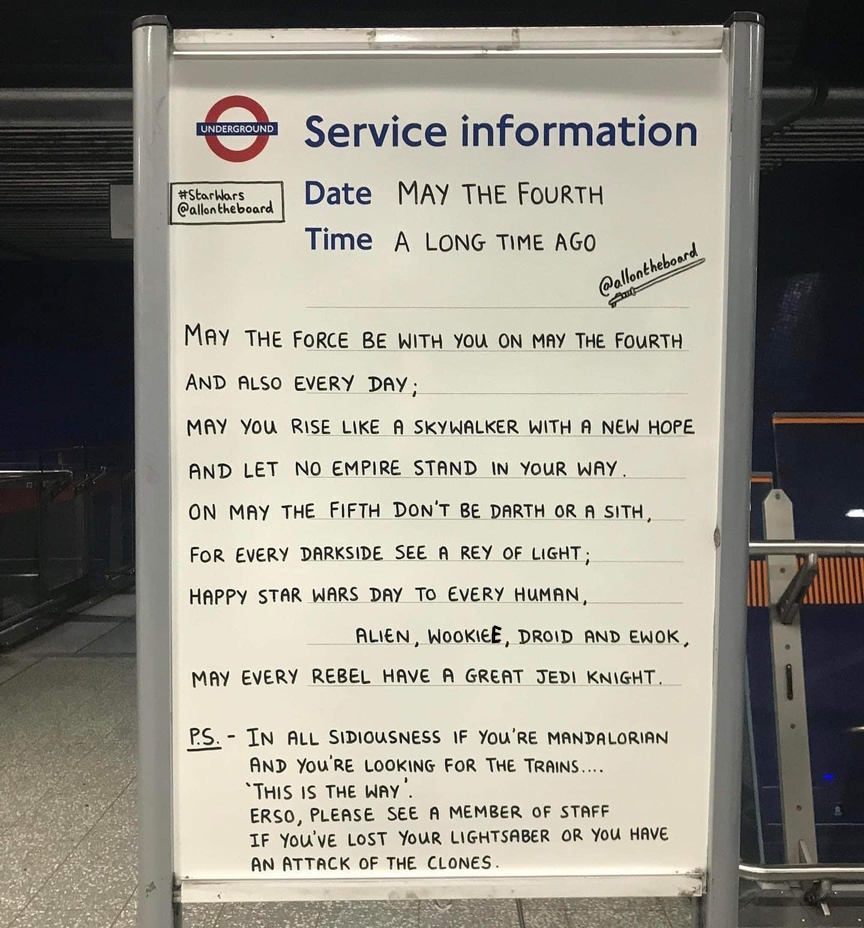 UNDERGROUND
Service information
#StarWars
@allontheboard
Date MAY THE FOURTH
Time A LONG TIME AGO
@allontheboard
MAY THE FORCE BE WITH YOU ON MAY THE FOURTH
AND ALSO EVERY DAY;
MAY YOU RISE LIKE A SKYWALKER WITH A NEW HOPE
AND LET NO EMPIRE STAND IN YOUR WAY.
ON MAY THE FIFTH DON'T BE DARTH OR A SITH,
FOR EVERY DARKSIDE SEE A REY OF LIGHT;
HAPPY STAR WARS DAY TO EVERY HUMAN,
ALIEN, WOOKIEE, DROID AND EWOK,
MAY EVERY REBEL HAVE A GREAT JEDI KNIGHT.
P.S. - IN ALL SIDIOUSNESS IF YOU'RE MANDALORIAN
AND YOU'RE LOOKING FOR THE TRAINS....
'THIS IS THE WAY'.
ERSO, PLEASE SEE A MEMBER OF STAFF
IF YOU'VE LOST YOUR LIGHTSABER OR YOU HAVE
AN ATTACK OF THE CLONES.